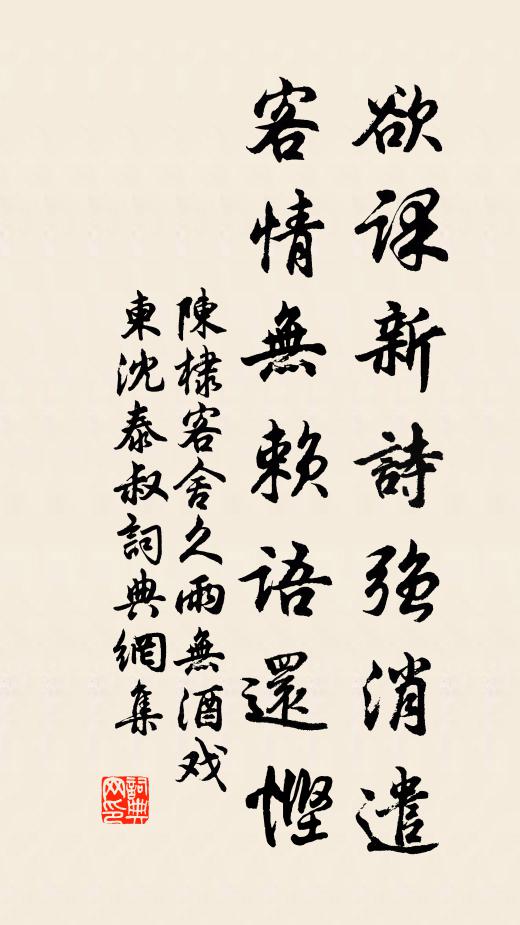 欲課新詩強消遣
客情無賴語還慳
陳棣客舍久雨無酒戏
東沈泰叔詞典網集
詞典网印